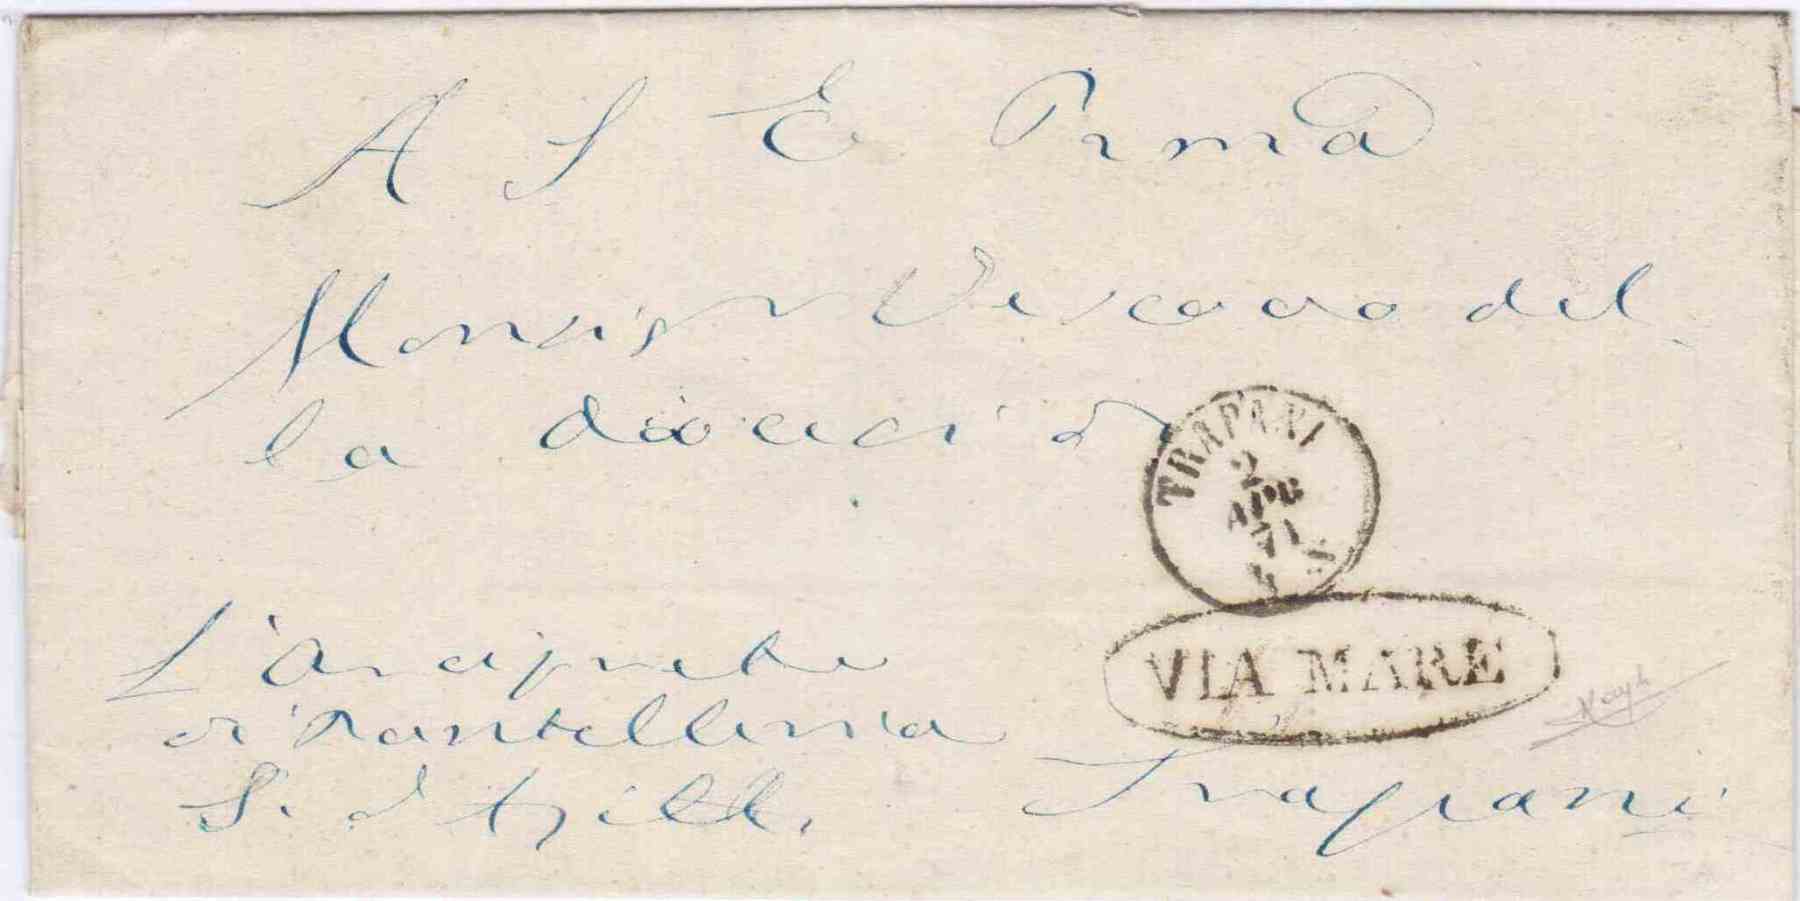 A S E Rma
Monsigr Vescovo del
la diocesi di
TRAPANI
2
APR
71
VIA MARE
L'Arciprete
di Pantelleria
Trapani